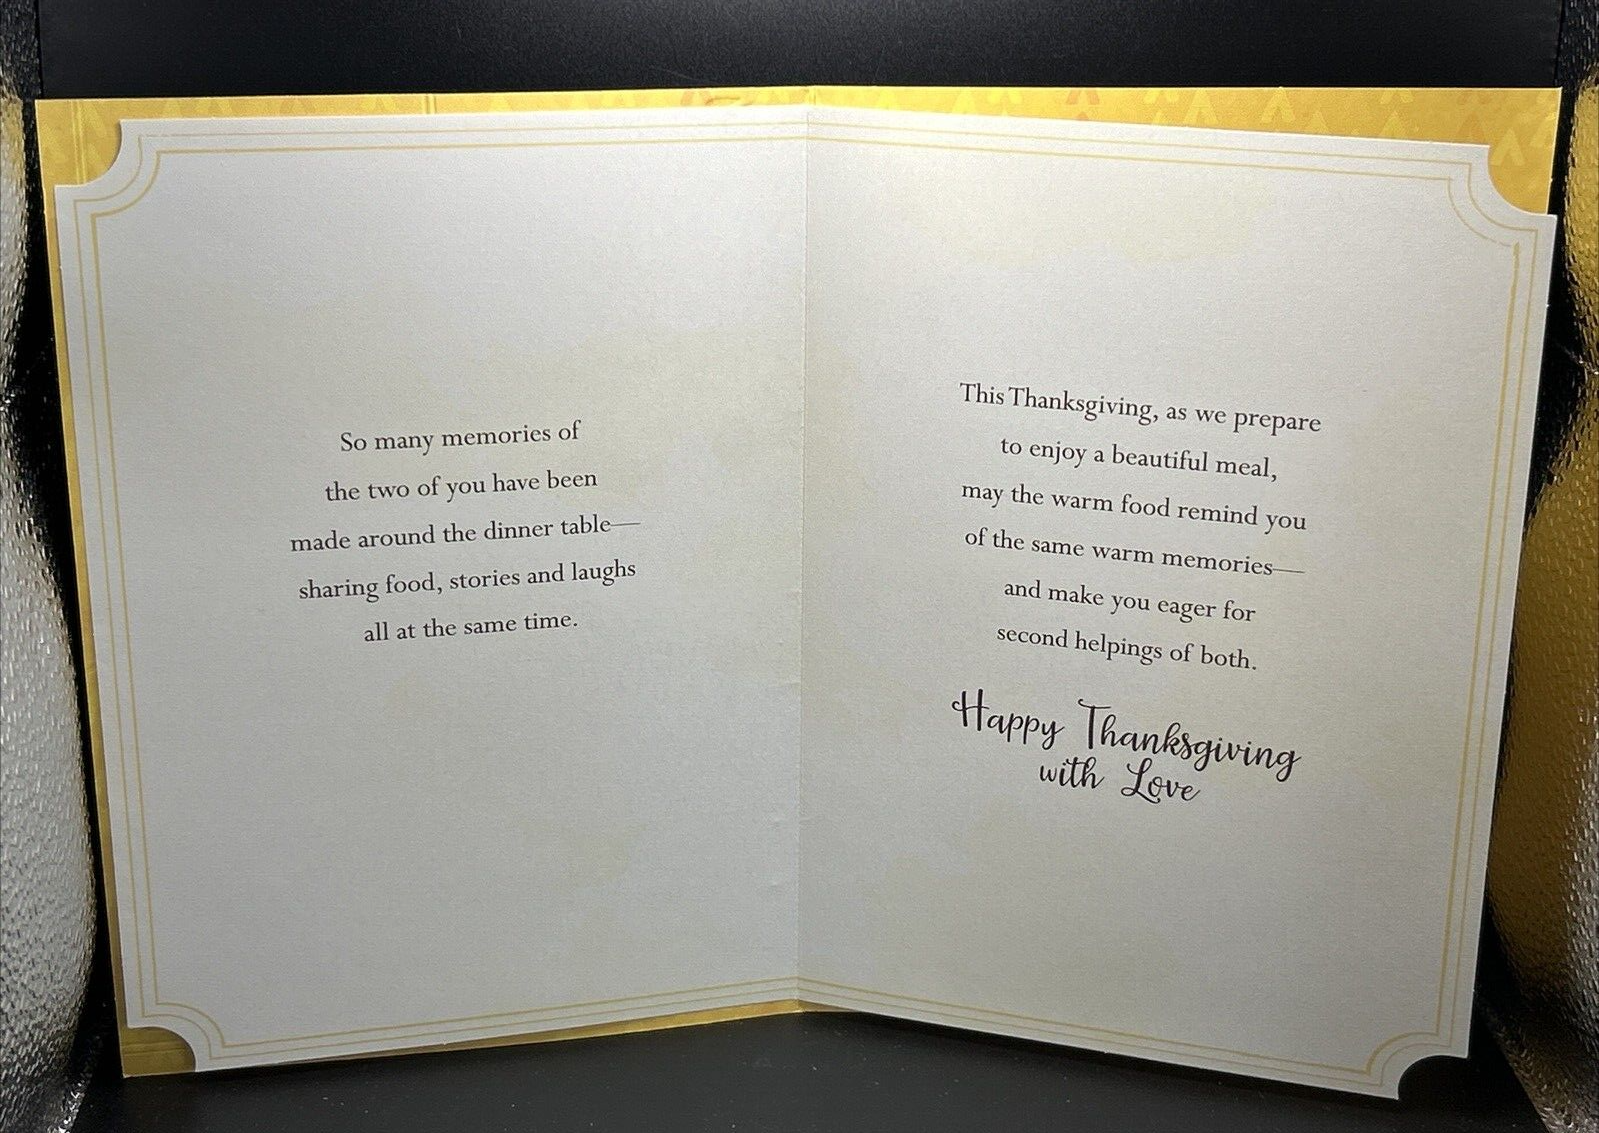 So many memories of
the two of you have been
made around the dinner table—
sharing food, stories and laughs
all at the same time.
This Thanksgiving, as we prepare
to enjoy a beautiful meal,
may the warm food remind you
of the same warm memories—
and make you eager for
second helpings of both.
Happy Thanksgiving
with Love